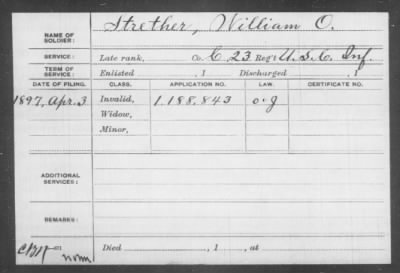 NAME OF SOLDIER: Strether, William O.
SERVICE: Late rank, Co. C, 23 Reg't U.S.C. Inf.
TERM OF SERVICE: Enlisted , 1 Discharged , 1
DATE OF FILING. CLASS. APPLICATION NO. LAW. CERTIFICATE NO.
1897, Apr. 3 Invalid, 1.188.843
Widow,
Minor,
ADDITIONAL SERVICES:
REMARKS:
Died , 1 , at